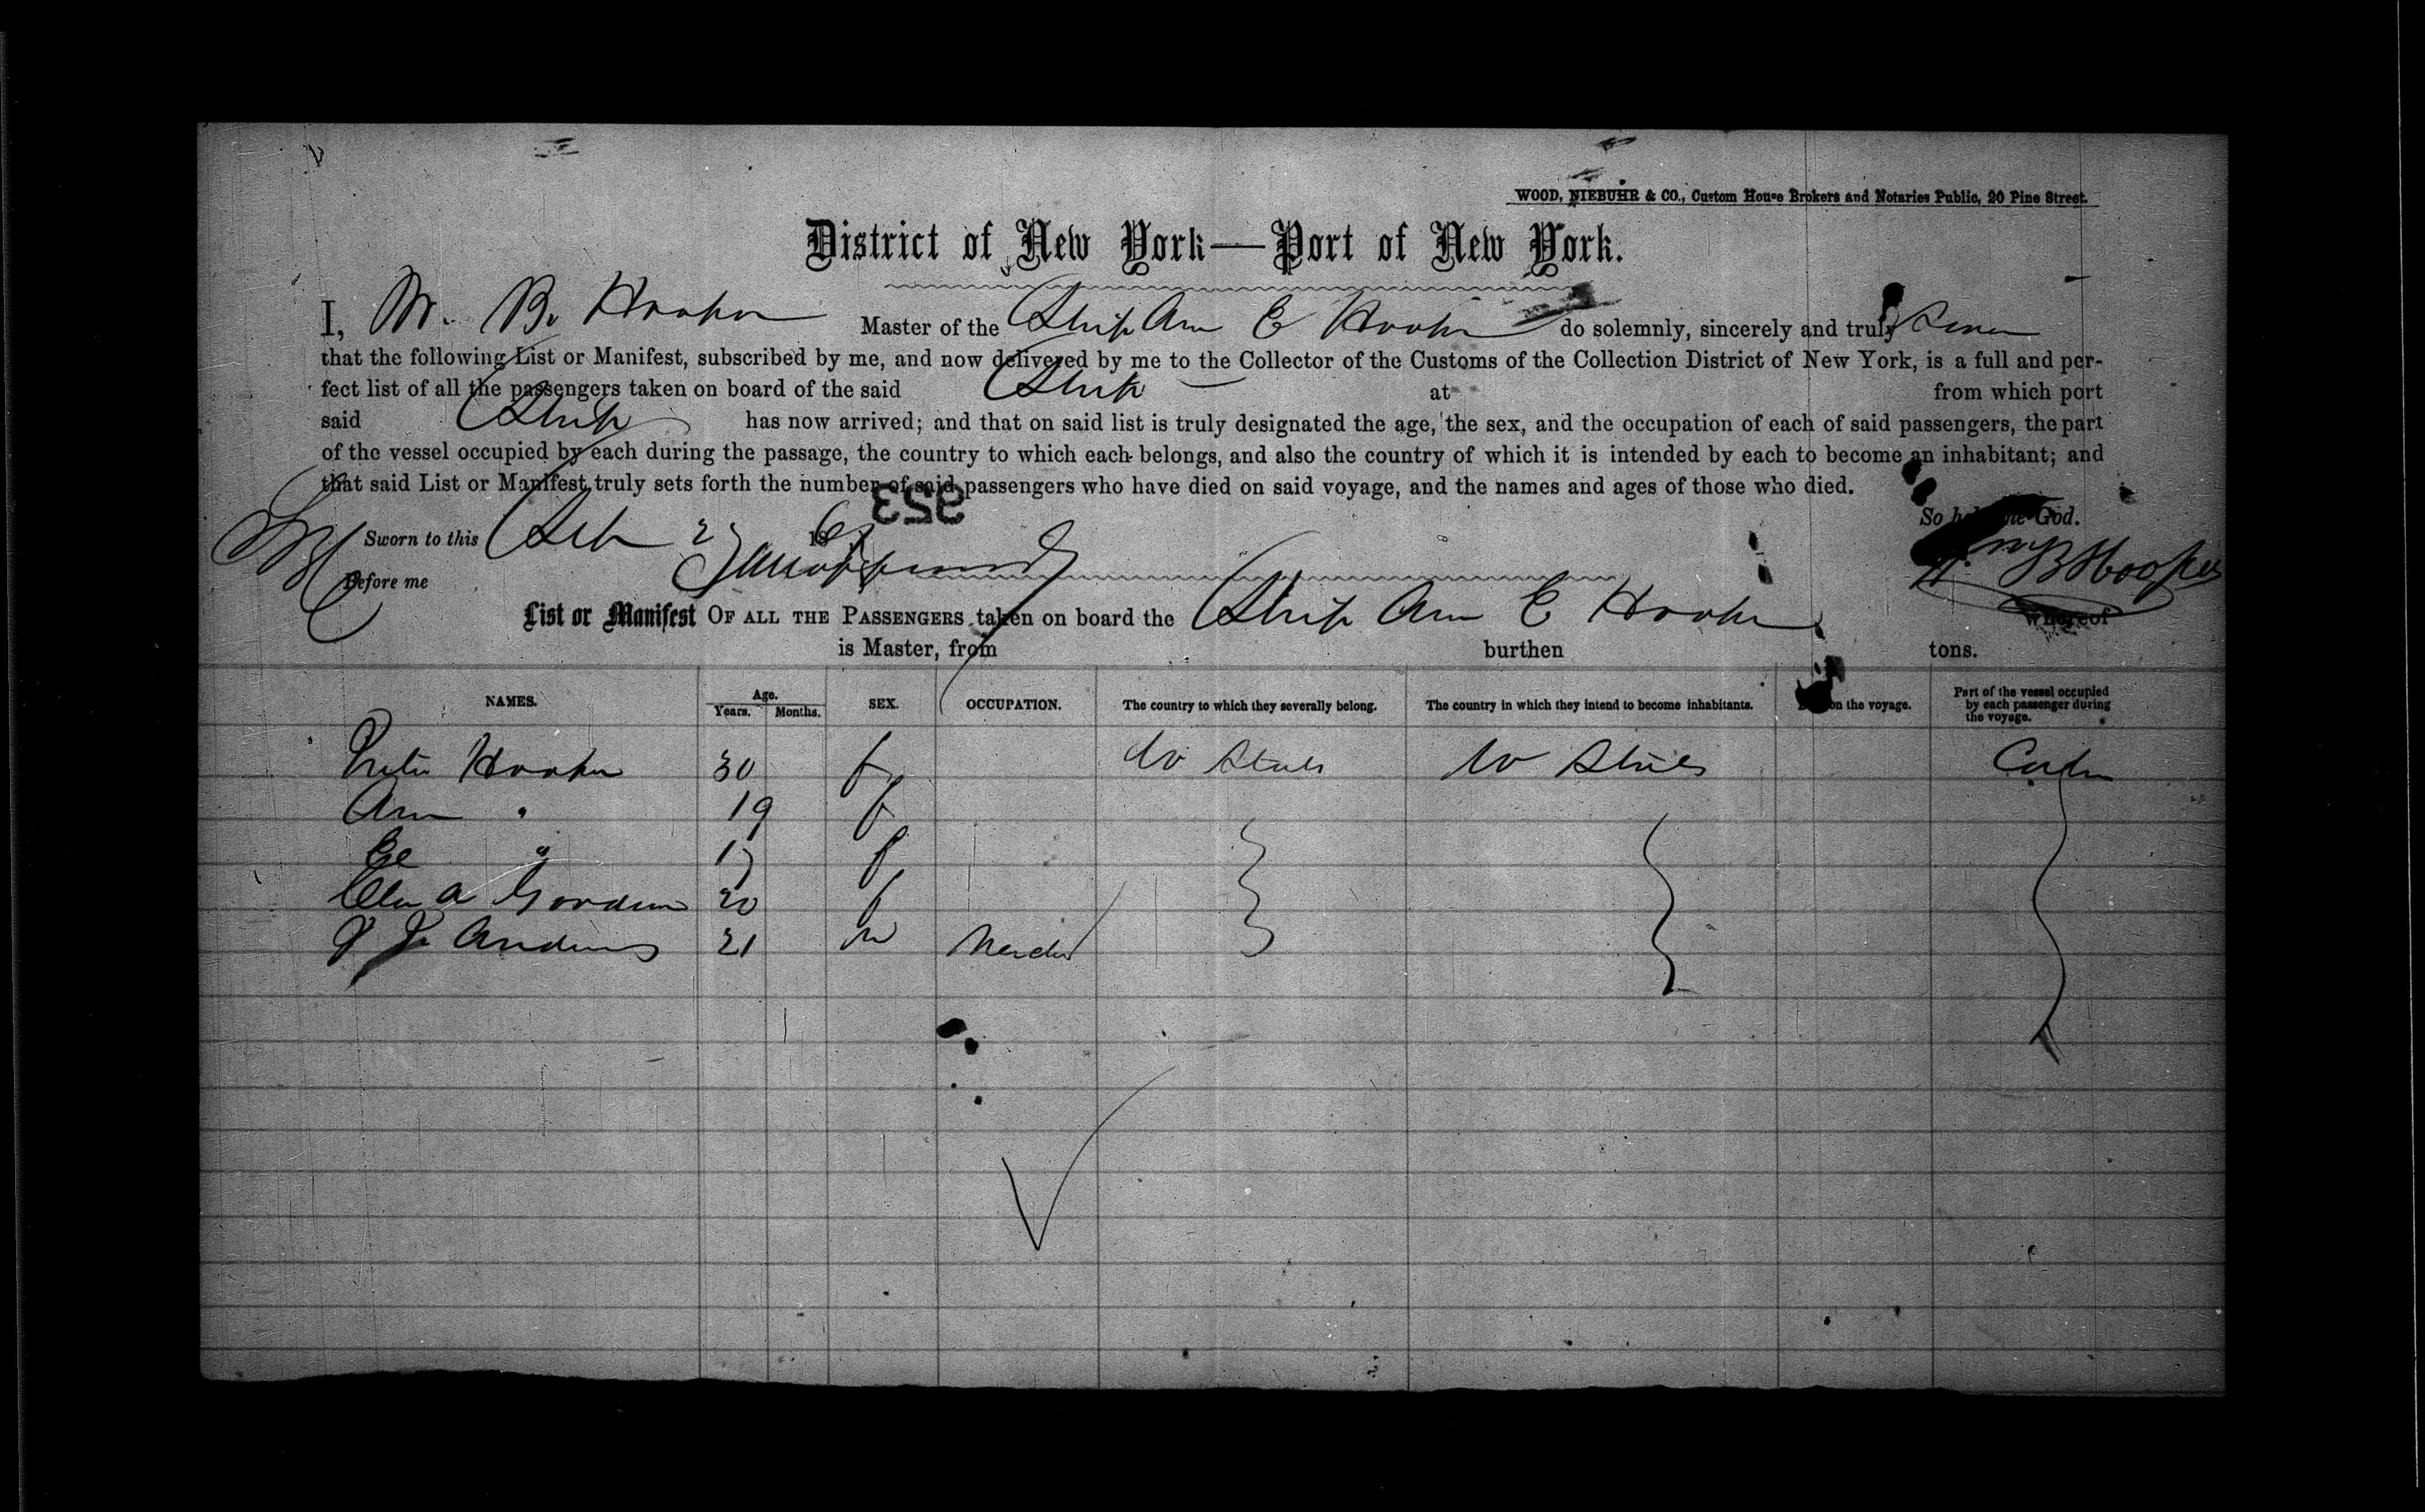 WOOD, NIEBUHR & CO., Custom House Brokers and Notaries Public, 20 Pine Street.
District of New York—Port of New York.
I, W. B. Hooper Master of the Ship Ann E Hooper do solemnly, sincerely and truly Swear
that the following List or Manifest, subscribed by me, and now delivered by me to the Collector of the Customs of the Collection District of New York, is a full and per-
fect list of all the passengers taken on board of the said Ship at from which port
said Ship has now arrived; and that on said list is truly designated the age, the sex, and the occupation of each of said passengers, the part
of the vessel occupied by each during the passage, the country to which each belongs, and also the country of which it is intended by each to become an inhabitant; and
that said List or Manifest truly sets forth the number of said passengers who have died on said voyage, and the names and ages of those who died.
953
So help me God.
Sworn to this 2 186
Before me
Hooper
List or Manifest OF ALL THE PASSENGERS taken on board the Ship Ann E Hooper whereof
is Master, from burthen tons.
NAMES. Age. Years. Months. SEX. OCCUPATION. The country to which they severally belong. The country in which they intend to become inhabitants. on the voyage. Part of the vessel occupied by each passenger during the voyage.
Hooper 30 f U States U States Cabin
Ann " 19 f
" 17 f
A Goodwin 20 f
J Andrews 21 m